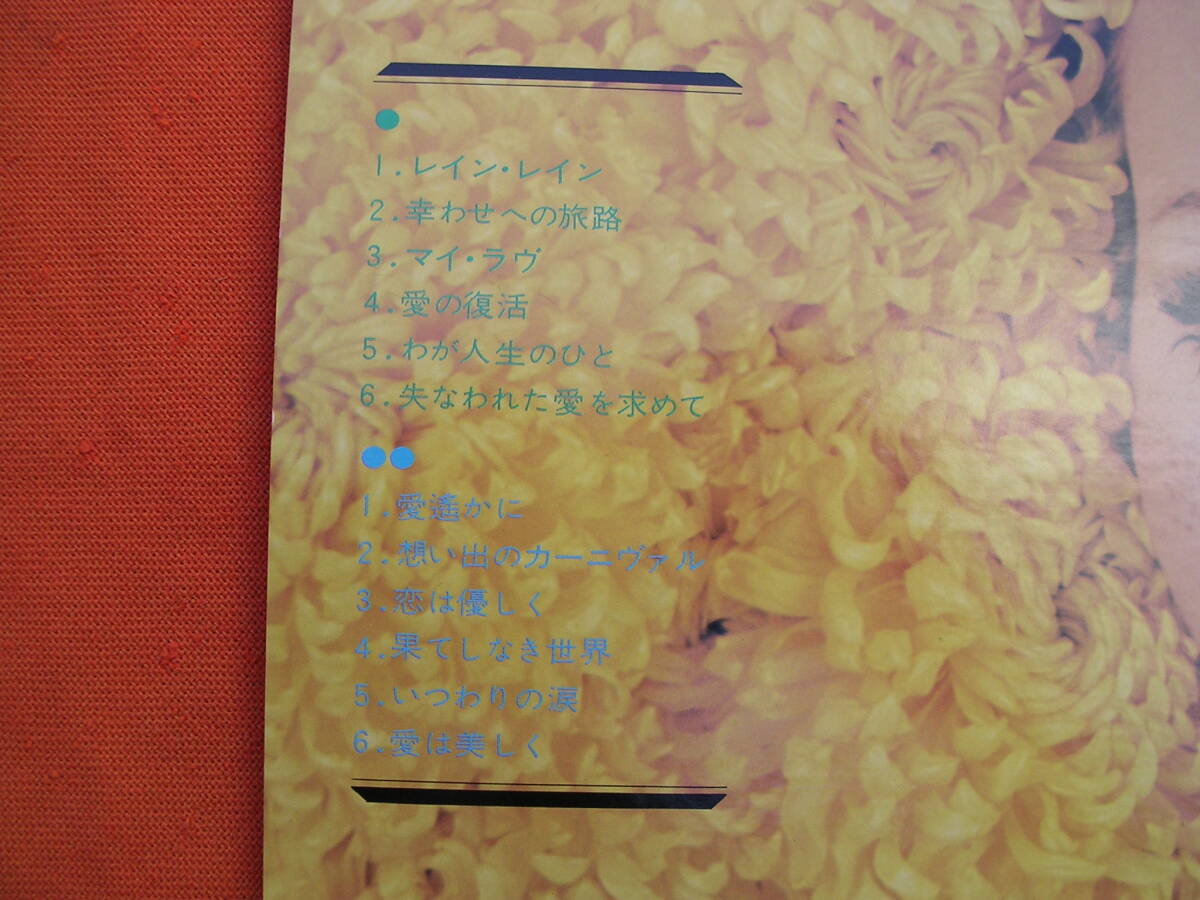 1.レイン・レイン
2.幸わせへの旅路
3.マイ・ラヴ
4.愛の復活
5.わが人生のひと
6.失なわれた愛を求めて
1.愛遙かに
2.想い出のカーニヴァル
3.恋は優しく
4.果てしなき世界
5.いつわりの涙
6.愛は美しく